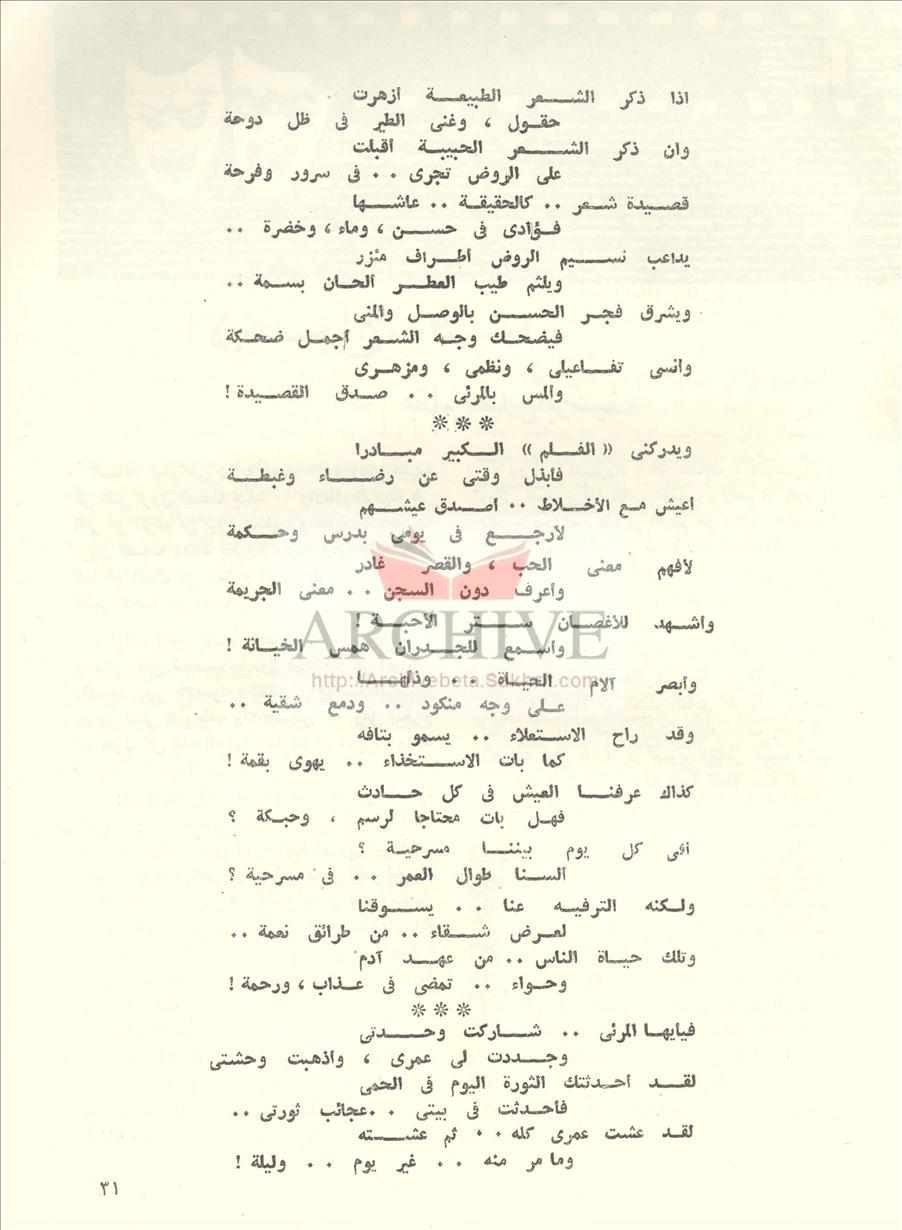 اذا ذكر الشعر الطبيعة أزهرت
حقول ، وغنى الطير فى ظل دوحة
وان ذكر الشعر الحبيبة أقبلت
على الروض تجرى .. فى سرور وفرحة
قصيدة شعر .. كالحقيقة .. عاشها
فؤادى فى حسن ، وماء ، وخضرة ..
يداعب نسيم الروض أطراف مئزر
ويلثم طيب العطر ألحان بسمة ..
ويشرق فجر الحسن بالوصل والمنى
فيضحك وجه الشعر أجمل ضحكة
وانسى تفاعيلى ، ونظمى ، ومزهرى
وألمس بالمرئى .. صدق القصيدة !
***
ويدركنى « الفلم » الكبير مبادرا
فأبذل وقتى عن رضاء وغبطة
أعيش مع الأخلاط .. أصدق عيشهم
لارجع فى يومى بدرس وحكمة
لأفهم معنى الحب ، والقصر غادر
وأعرف دون السجن .. معنى الجريمة
وأشهد للأغصان ستر الأحبة !
وأسمع للجدران همس الخيانة !
وأبصر آلام الحياة .. وذلها
على وجه منكود .. ودمع شقية ..
وقد راح الاستعلاء .. يسمو بتافه
كما بات الاستخذاء .. يهوى بقمة !
كذاك عرفنا العيش فى كل حادث
فهل بات محتاجا لرسم ، وحبكة ؟
أفى كل يوم بيننا مسرحية ؟
ألسنا طوال العمر .. فى مسرحية ؟
ولكنه الترفيه عنا .. يسوقنا
لعرض شقاء .. من طرائق نعمة ..
وتلك حياة الناس .. من عهد آدم
وحواء .. تمضى فى عذاب ، ورحمة !
***
فيايها المرئى .. شاركت وحدتى
وجددت لى عمرى ، وأذهبت وحشتى
لقد أحدثتك الثورة اليوم فى الحمى
فأحدثت فى بيتى .. عجائب ثورتى ..
لقد عشت عمرى كله .. ثم عشته
وما مر منه .. غير يوم .. وليلة !
٣١
ARCHIVE
http://Archivebeta.Sakhrit.com